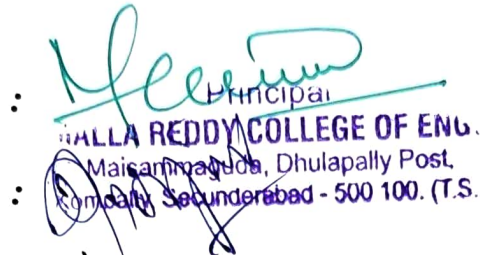 :
Principal
MALLA REDDY COLLEGE OF ENG.
Maisammaguda, Dhulapally Post,
: Kompally, Secunderabad - 500 100. (T.S.